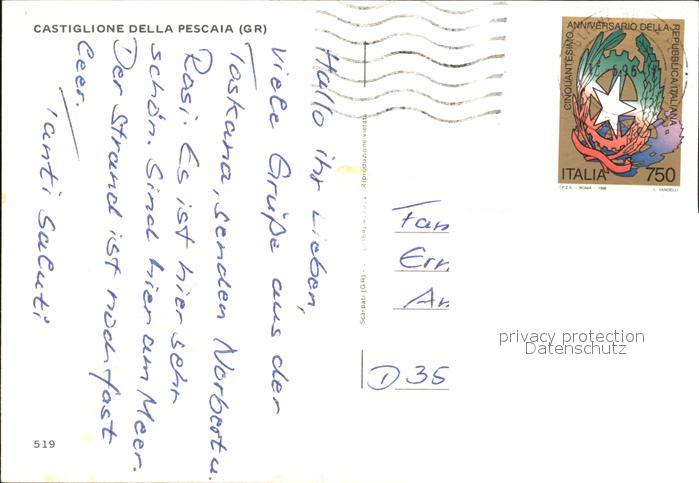 CASTIGLIONE DELLA PESCAIA (GR)
Hallo ihr Lieben,
Viele Grüße aus der
Toskana, senden Norbert u.
Rosi. Es ist hier sehr
schön. Sind hier am Meer.
Der Strand ist noch fast
leer.
Tanti saluti
519
Scarpati (GR)
Riproduzione vietata
CINQUANTESIMO ANNIVERSARIO DELLA REPUBBLICA ITALIANA
ITALIA 750
I.P.Z.S. - ROMA - 1996
L. VANGELLI
Fam
Ern
An
D 35
privacy protection
Datenschutz